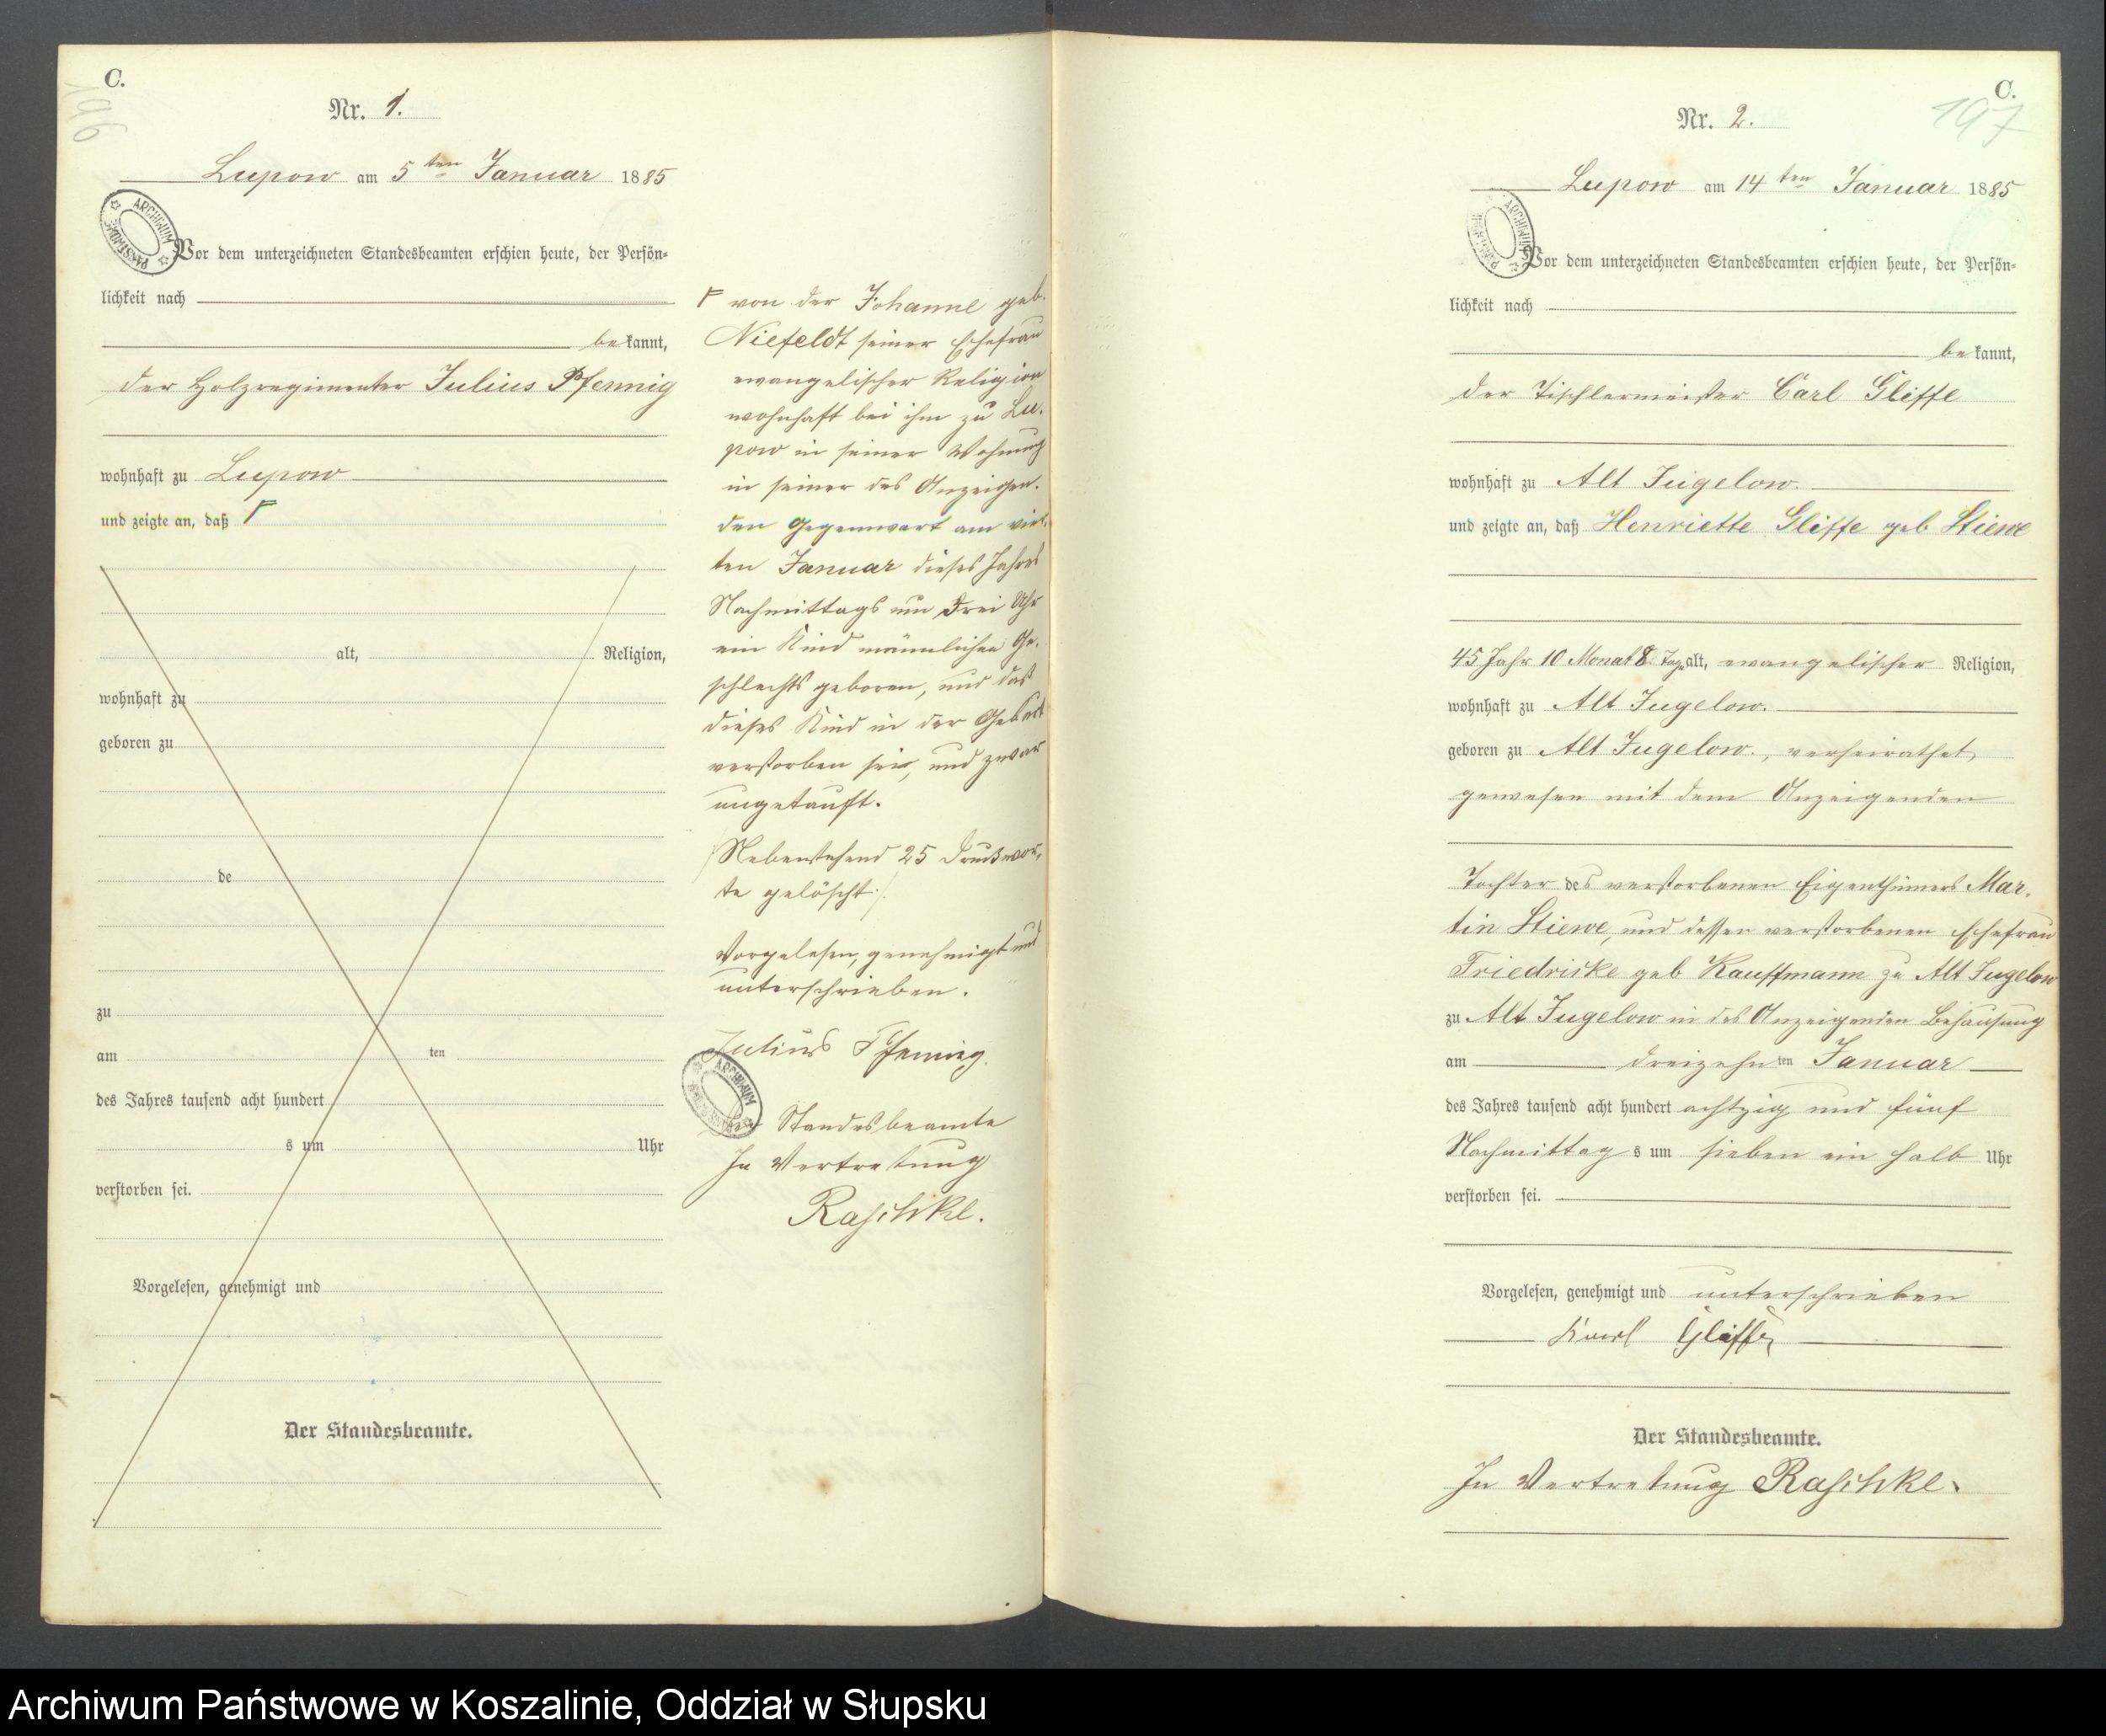 C.
196
Nr. 1.
Lupow am 5ten Januar 1885
ARCHIWUM PAŃSTWOWE
Vor dem unterzeichneten Standesbeamten erschien heute, der Persön-
lichkeit nach
bekannt,
der Holzregimenter Julius Pfennig
wohnhaft zu Lupow
und zeigte an, daß
alt, Religion,
wohnhaft zu
geboren zu
de
zu
am ten
des Jahres tausend acht hundert
s um Uhr
verstorben sei.
Vorgelesen, genehmigt und
Der Standesbeamte.
von der Johanne geb.
Niefeldt seiner Ehefrau
evangelischer Religion
wohnhaft bei ihm zu Lu-
pow in seiner Wohnung
in seiner des Anzeigen-
den Gegenwart am vier-
ten Januar dieses Jahres
Nachmittags um drei Uhr
ein Kind männlichen Ge-
schlechts geboren, und daß
dieses Kind in der Geburt
verstorben sei, und zwar
ungetauft.
Nebenstehend 25 Druckwor-
te gelöscht.
Vorgelesen, genehmigt und
unterschrieben.
Julius Pfennig.
ARCHIWUM PAŃSTWOWE
Standesbeamte
In Vertretung
Raschke.
C.
197
Nr. 2.
Lupow am 14ten Januar 1885
ARCHIWUM PAŃSTWOWE
Vor dem unterzeichneten Standesbeamten erschien heute, der Persön-
lichkeit nach
bekannt,
der Tischlermeister Carl Gliffe
wohnhaft zu Alt Jugelow.
und zeigte an, daß Henriette Gliffe geb Stiewe
45 Jahr 10 Monat 8 Tage alt, evangelischer Religion,
wohnhaft zu Alt Jugelow.
geboren zu Alt Jugelow., verheirathet
gewesen mit dem Anzeigenden
Tochter des verstorbenen Eigenthümers Mar-
tin Stiewe, und dessen verstorbenen Ehefrau
Friedricke geb Kauffmann zu Alt Jugelow
zu Alt Jugelow in des Anzeigenden Behausung
am dreizehnten Januar
des Jahres tausend acht hundert achtzig und fünf
Nachmittags um sieben ein halb Uhr
verstorben sei.
Vorgelesen, genehmigt und unterschrieben
Karl Gliffe
Der Standesbeamte.
In Vertretung Raschke.
Archiwum Państwowe w Koszalinie, Oddział w Słupsku